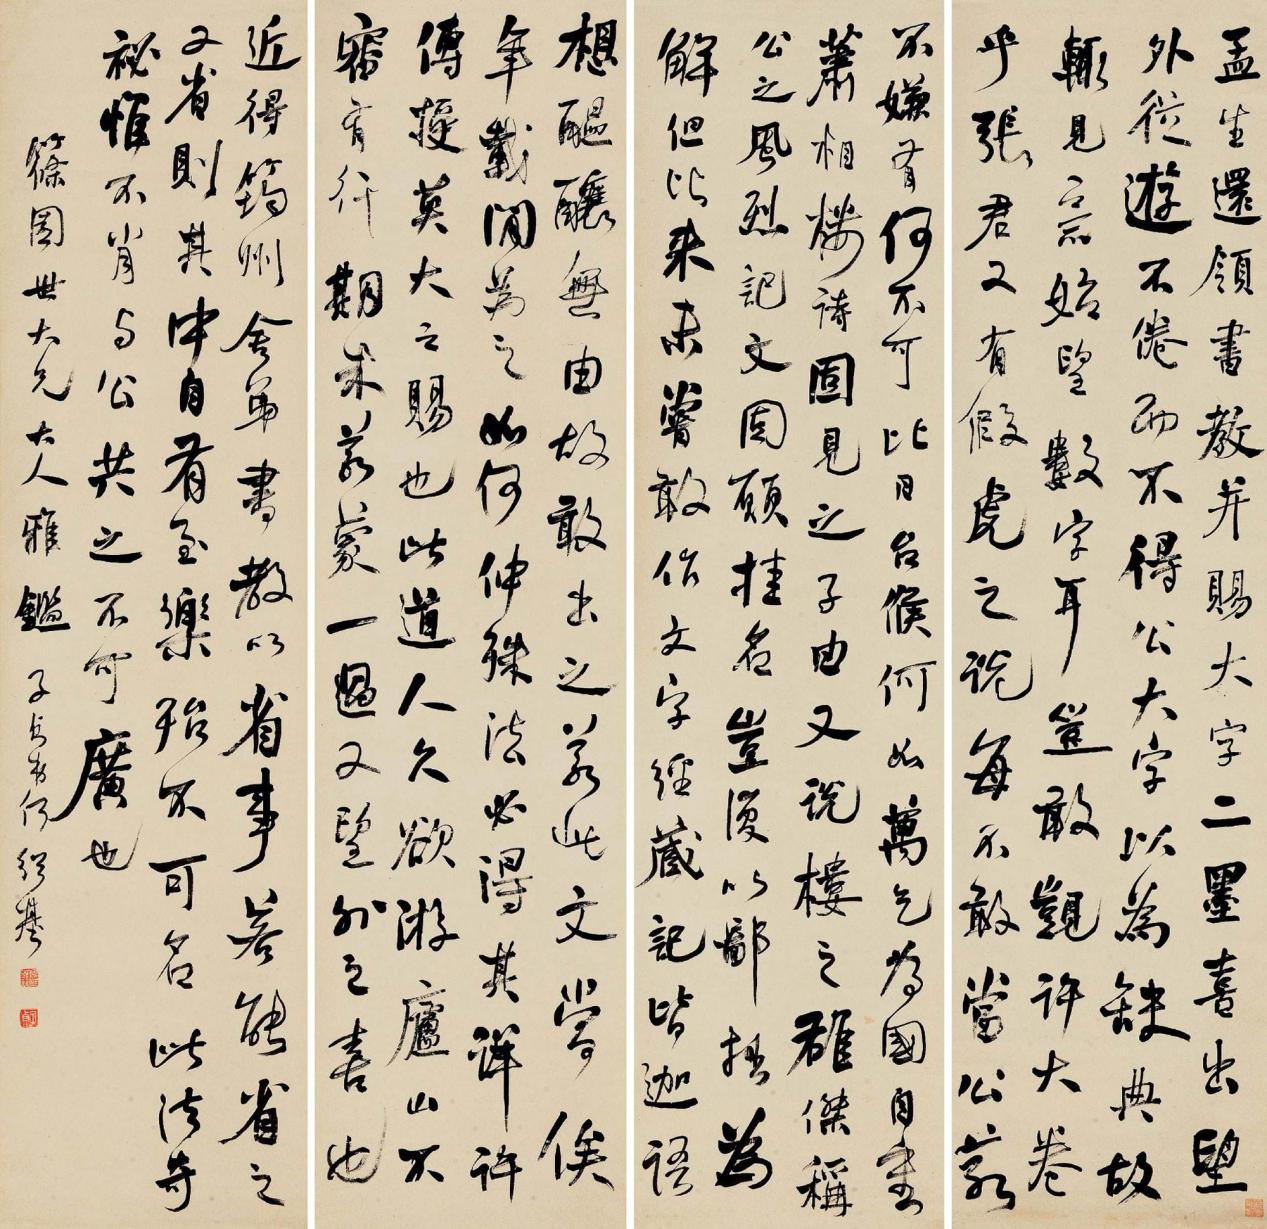 孟生還領書教并賜大字二墨喜出望
外從遊不倦而不得公大字以為缺典故
輒見意始望數字耳豈敢覬許大卷
乎張君又有假虎之說每不敢當公若
不嫌有何不可比日台候何如萬乞為國自重
蕭相樓詩固見之子由又說樓之雄傑稱
公之風烈記文固願挂名豈復以鄙拙為
解但比來未嘗敢作文字經藏記皆迦語
想醞釀無由故敢出之若此文當俟
年載閒為之如何仲殊法必得其詳許
傳授莫大之賜也此道人久欲游廬山不
審有行期未若蒙一過又望外之喜也
近得筠州舍弟書教以省事若能省之
又省則其中自有至樂殆不可名此法奇
祕惟不肖與公共之不可廣也
篠圃世大兄大人雅鑑 子貞弟何紹基